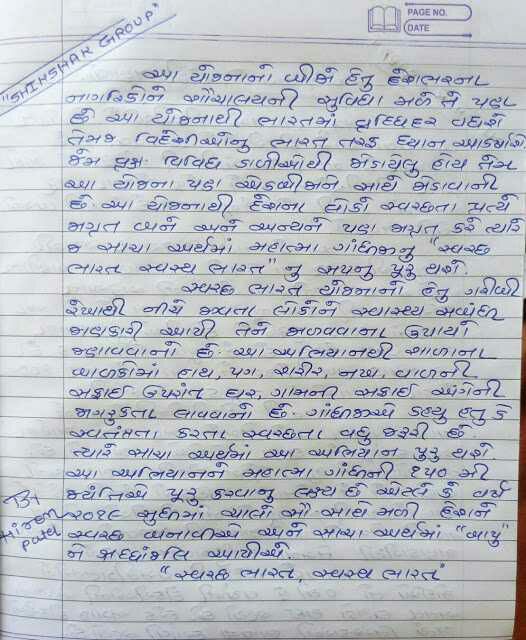 PAGE NO.
DATE
"SHIKSHAK GROUP"
આ યોજનાનો બીજો હેતુ દેશભરના
નાગરિકોને શૌચાલયની સુવિધા મળે તે પણ
છે આ યોજનાથી ભારતમાં વૃધ્ધિદર વધશે
તેમજ વિદેશીઓનુ ભારત તરફ ધ્યાન આકર્ષાશે
જેમ વૃક્ષ વિવિધ ડાળીઓથી જોડાયેલુ હોય તેમ
આ યોજના પણ એકબીજાને સાથે જોડાવાની
છે આ યોજનાથી દેશના લોકો સ્વચ્છતા પ્રત્યે
જાગૃત બને અને અન્યને પણ જાગૃત કરે ત્યારે
જ સાચા અર્થમાં મહાત્મા ગાંધીજીનુ "સ્વચ્છ
ભારત સ્વસ્થ ભારત" નુ સપનુ પુરૂ થશે.
સ્વચ્છ ભારત યોજનાનો હેતુ ગરીબી
રેખાથી નીચે જીવતા લોકોને સ્વાસ્થ્ય સબંધિત
જાણકારી આપી તેને જાળવવાના ઉપાયો
જણાવવાનો છે. આ અભિયાનથી શાળાના
બાળકોમાં હાથ, પગ, શરીર, નખ, વાળની
સફાઈ ઉપરાંત ઘર, ગામની સફાઈ અંગેની
જાગરુકતા લાવવાનો છે. ગાંધીજીએ કહ્યુ હતુ કે
સ્વતંત્રતા કરતા સ્વચ્છતા વધુ જરૂરી છે.
ત્યારે સાચા અર્થમાં આ અભિયાન પુરૂ થશે.
આ અભિયાનને મહાત્મા ગાંધીની ૧૫૦ મી
જયંતિએ પુરૂ કરવાનુ લક્ષ્ય છે એટલે કે વર્ષ
૨૦૧૯ સુધીમાં ચાલો સૌ સાથે મળી દેશને
સ્વચ્છ બનાવીએ અને સાચા અર્થમાં "બાપુ"
ને શ્રધ્ધાંજલિ આપીએ.
"સ્વચ્છ ભારત, સ્વસ્થ ભારત"
By
Hiren
patel